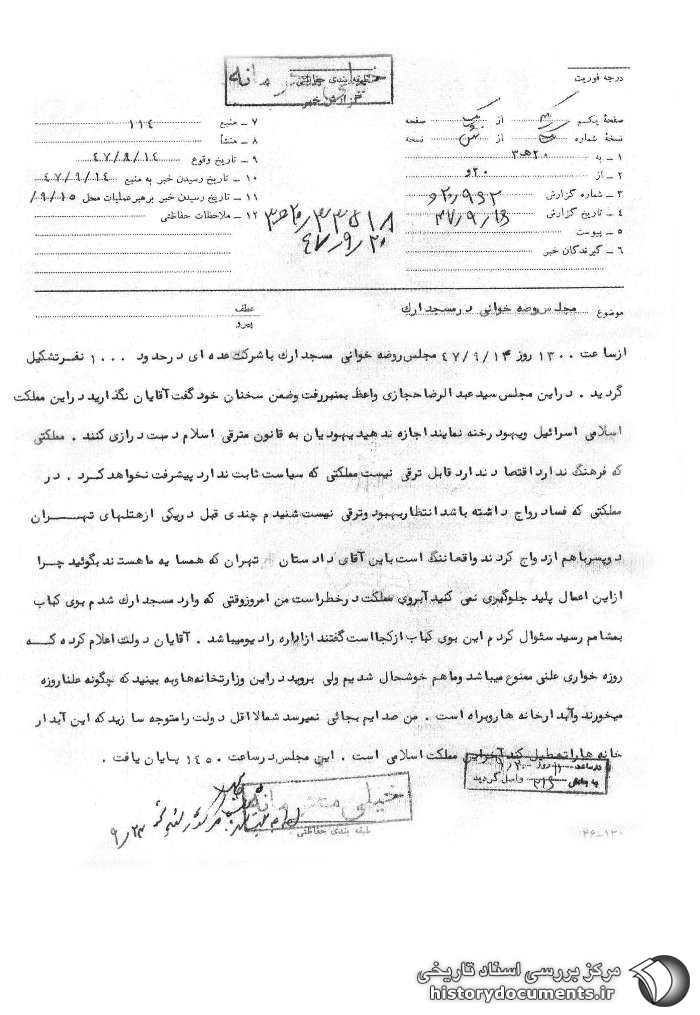 خیلی محرمانه
طبقه بندی حفاظتی
گزارش خبر
درجه فوریت
صفحهٔ یکم از یک صفحه
نسخهٔ شماره از نسخه
۱ ـ به ۲۰هـ۳
۲ ـ از ۲۰و
۳ ـ شماره گزارش
۴ ـ تاریخ گزارش
۵ ـ پیوست
۶ ـ گیرندگان خبر
۷ ـ منبع ۱۱۴
۸ ـ منشأ
۹ ـ تاریخ وقوع ۴۷/۹/۱۴
۱۰ ـ تاریخ رسیدن خبر به منبع ۴۷/۹/۱۴
۱۱ ـ تاریخ رسیدن خبر برهبرعملیات محل ۹/۱۵/
۱۲ ـ ملاحظات حفاظتی
۴۷٫۹٫۲۰
موضوع مجلس روضه خوانی در مسجد ارك
عطف
پیرو
از ساعت ۱۳۰۰ روز ۴۷/۹/۱۴ مجلس روضه خوانی مسجد ارك با شركت عده ای در حدود ۱۰۰۰ نفر تشکیل
گردید . در این مجلس سید عبد الرضا حجازی واعظ بمنبر رفت وضمن سخنان خود گفت آقایان نگذارید در این مملکت
اسلامی اسرائیل ویهود رخنه نمایند اجازه ندهید یهودیان به قانون مترقی اسلام دست درازی کنند . مملکتی
که فرهنگ ندارد اقتصاد ندارد قابل ترقی نیست مملکتی که سیاست ثابت ندارد پیشرفت نخواهد کرد . در
مملکتی که فساد رواج داشته باشد انتظار بهبود وترقی نیست شنیدم چندی قبل دریکی ازهتلهای تهران
دوپسر با هم ازدواج کردند واقعا ننگ است باین آقای دادستان تهران که همسایه ما هستند بگوئید چرا
از این اعمال پلید جلوگیری نمی کنید آبروی مملکت در خطر است من امروز وقتی که وارد مسجد ارك شدم بوی کباب
بمشامم رسید سئوال کردم این بوی کباب از کجا است گفتند از اداره رادیو میباشد . آقایان دولت اعلام کرده که
روزه خواری علنی ممنوع میباشد وما هم خوشحال شدیم ولی بروید در این وزارتخانه ها وبه بینید که چگونه علنا روزه
میخورند وآبدارخانه ها روبراه است . من صدایم بجائی نمیرسد شما لااقل دولت را متوجه سازید که این آبدار
خانه ها را تعطیل کند آخر این مملکت اسلامی است . این مجلس در ساعت ۱۴۵۰ پایان یافت .
در ساعت روز
به بخش ۳۱۶ واصل گردید
خیلی محرمانه
طبقه بندی حفاظتی
۹/۲۳
۲۶ـ۱۳۰
مرکز بررسی اسناد تاریخی
historydocuments.ir